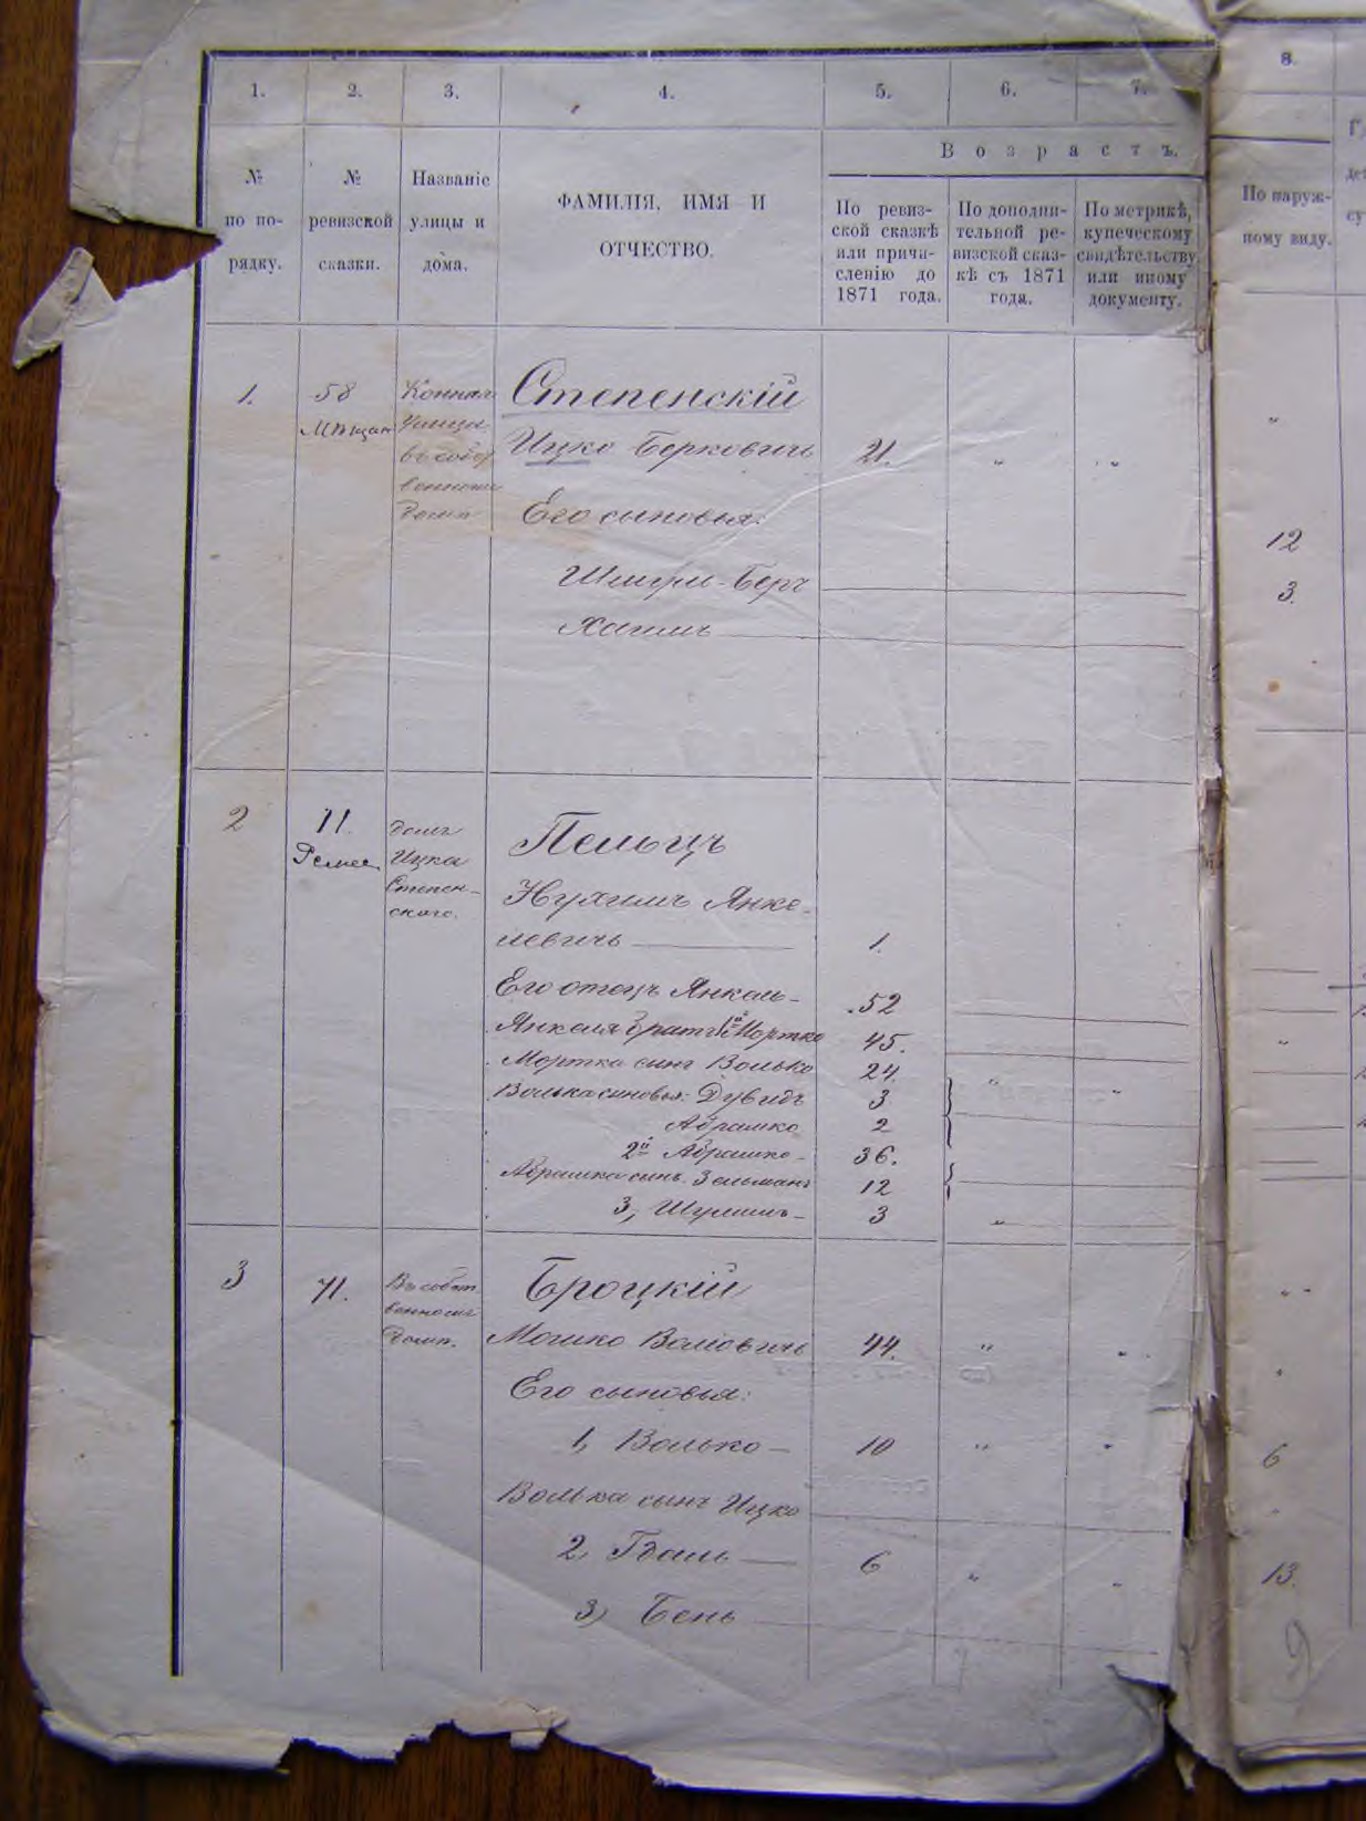 1.
2.
3.
4.
5.
6.
7.
8.
Возрастъ.
№
по по-
рядку.
№
ревизской
сказки.
Названіе
улицы и
дома.
ФАМИЛІЯ, ИМЯ И
ОТЧЕСТВО.
По ревиз-
ской сказкѣ
или причи-
сленію до
1871 года.
По дополни-
тельной ре-
визской сказ-
кѣ съ 1871
года.
По метрикѣ,
купеческому
свидѣтельству
или иному
документу.
По наруж-
ному виду.
1.
58
Мѣщан
Конная
улица
въ собст
венномъ
домѣ
Степенскій
Ицко Берковичъ 21. " "
Его сыновья:
Шмуль-Беръ
12
Хаимъ
3.
2
11.
Ремес.
домъ
Ицка
Степен-
скаго.
Пельцъ
Нухимъ Янке-
левичъ 1.
Его отецъ Янкель- 52
Янкеля братъ 1й Мортко 45.
Мортка сынъ Волько 24.
Волька сыновья: Дувидъ 3
Абрашко 2
2й Абрашко- 36.
Абрашка сынъ Зельманъ 12
3, Шулимъ- 3
3
71.
Въ собст
венномъ
домѣ.
Броцкій
Мошко Вольовичъ 44. "
Его сыновья:
1, Волько- 10 "
6
Волька сынъ Ицко
2, Гдаль 6 "
13.
3, Бень